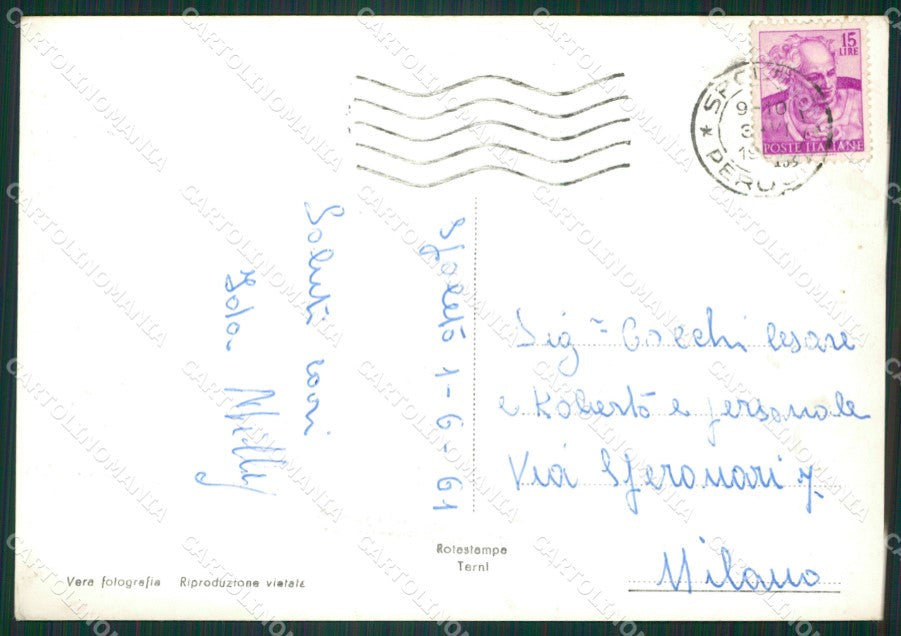 15
LIRE
POSTE ITALIANE
9-10
Spoleto 1-6-61
Saluti cari
Ida
Milly
Sig. Cocchi Cesare
e Roberto e personale
Via Speronari 7
Milano
Rotostampa
Terni
Vera fotografia Riproduzione vietata
CARTOLINOMANIA